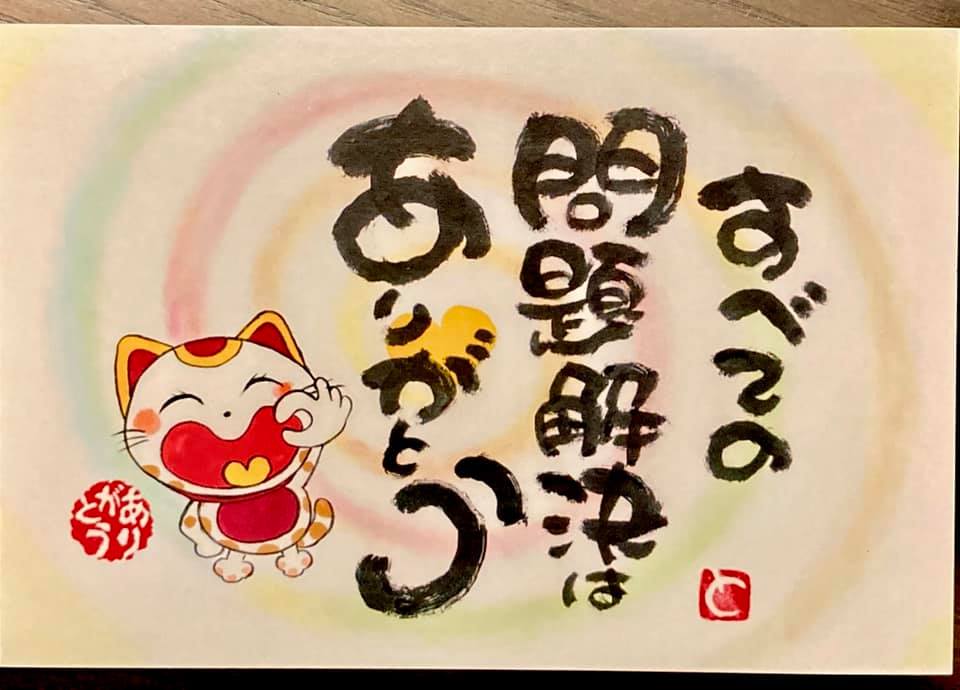 すべての
問題解決は
ありがとう
と
あり
がとう